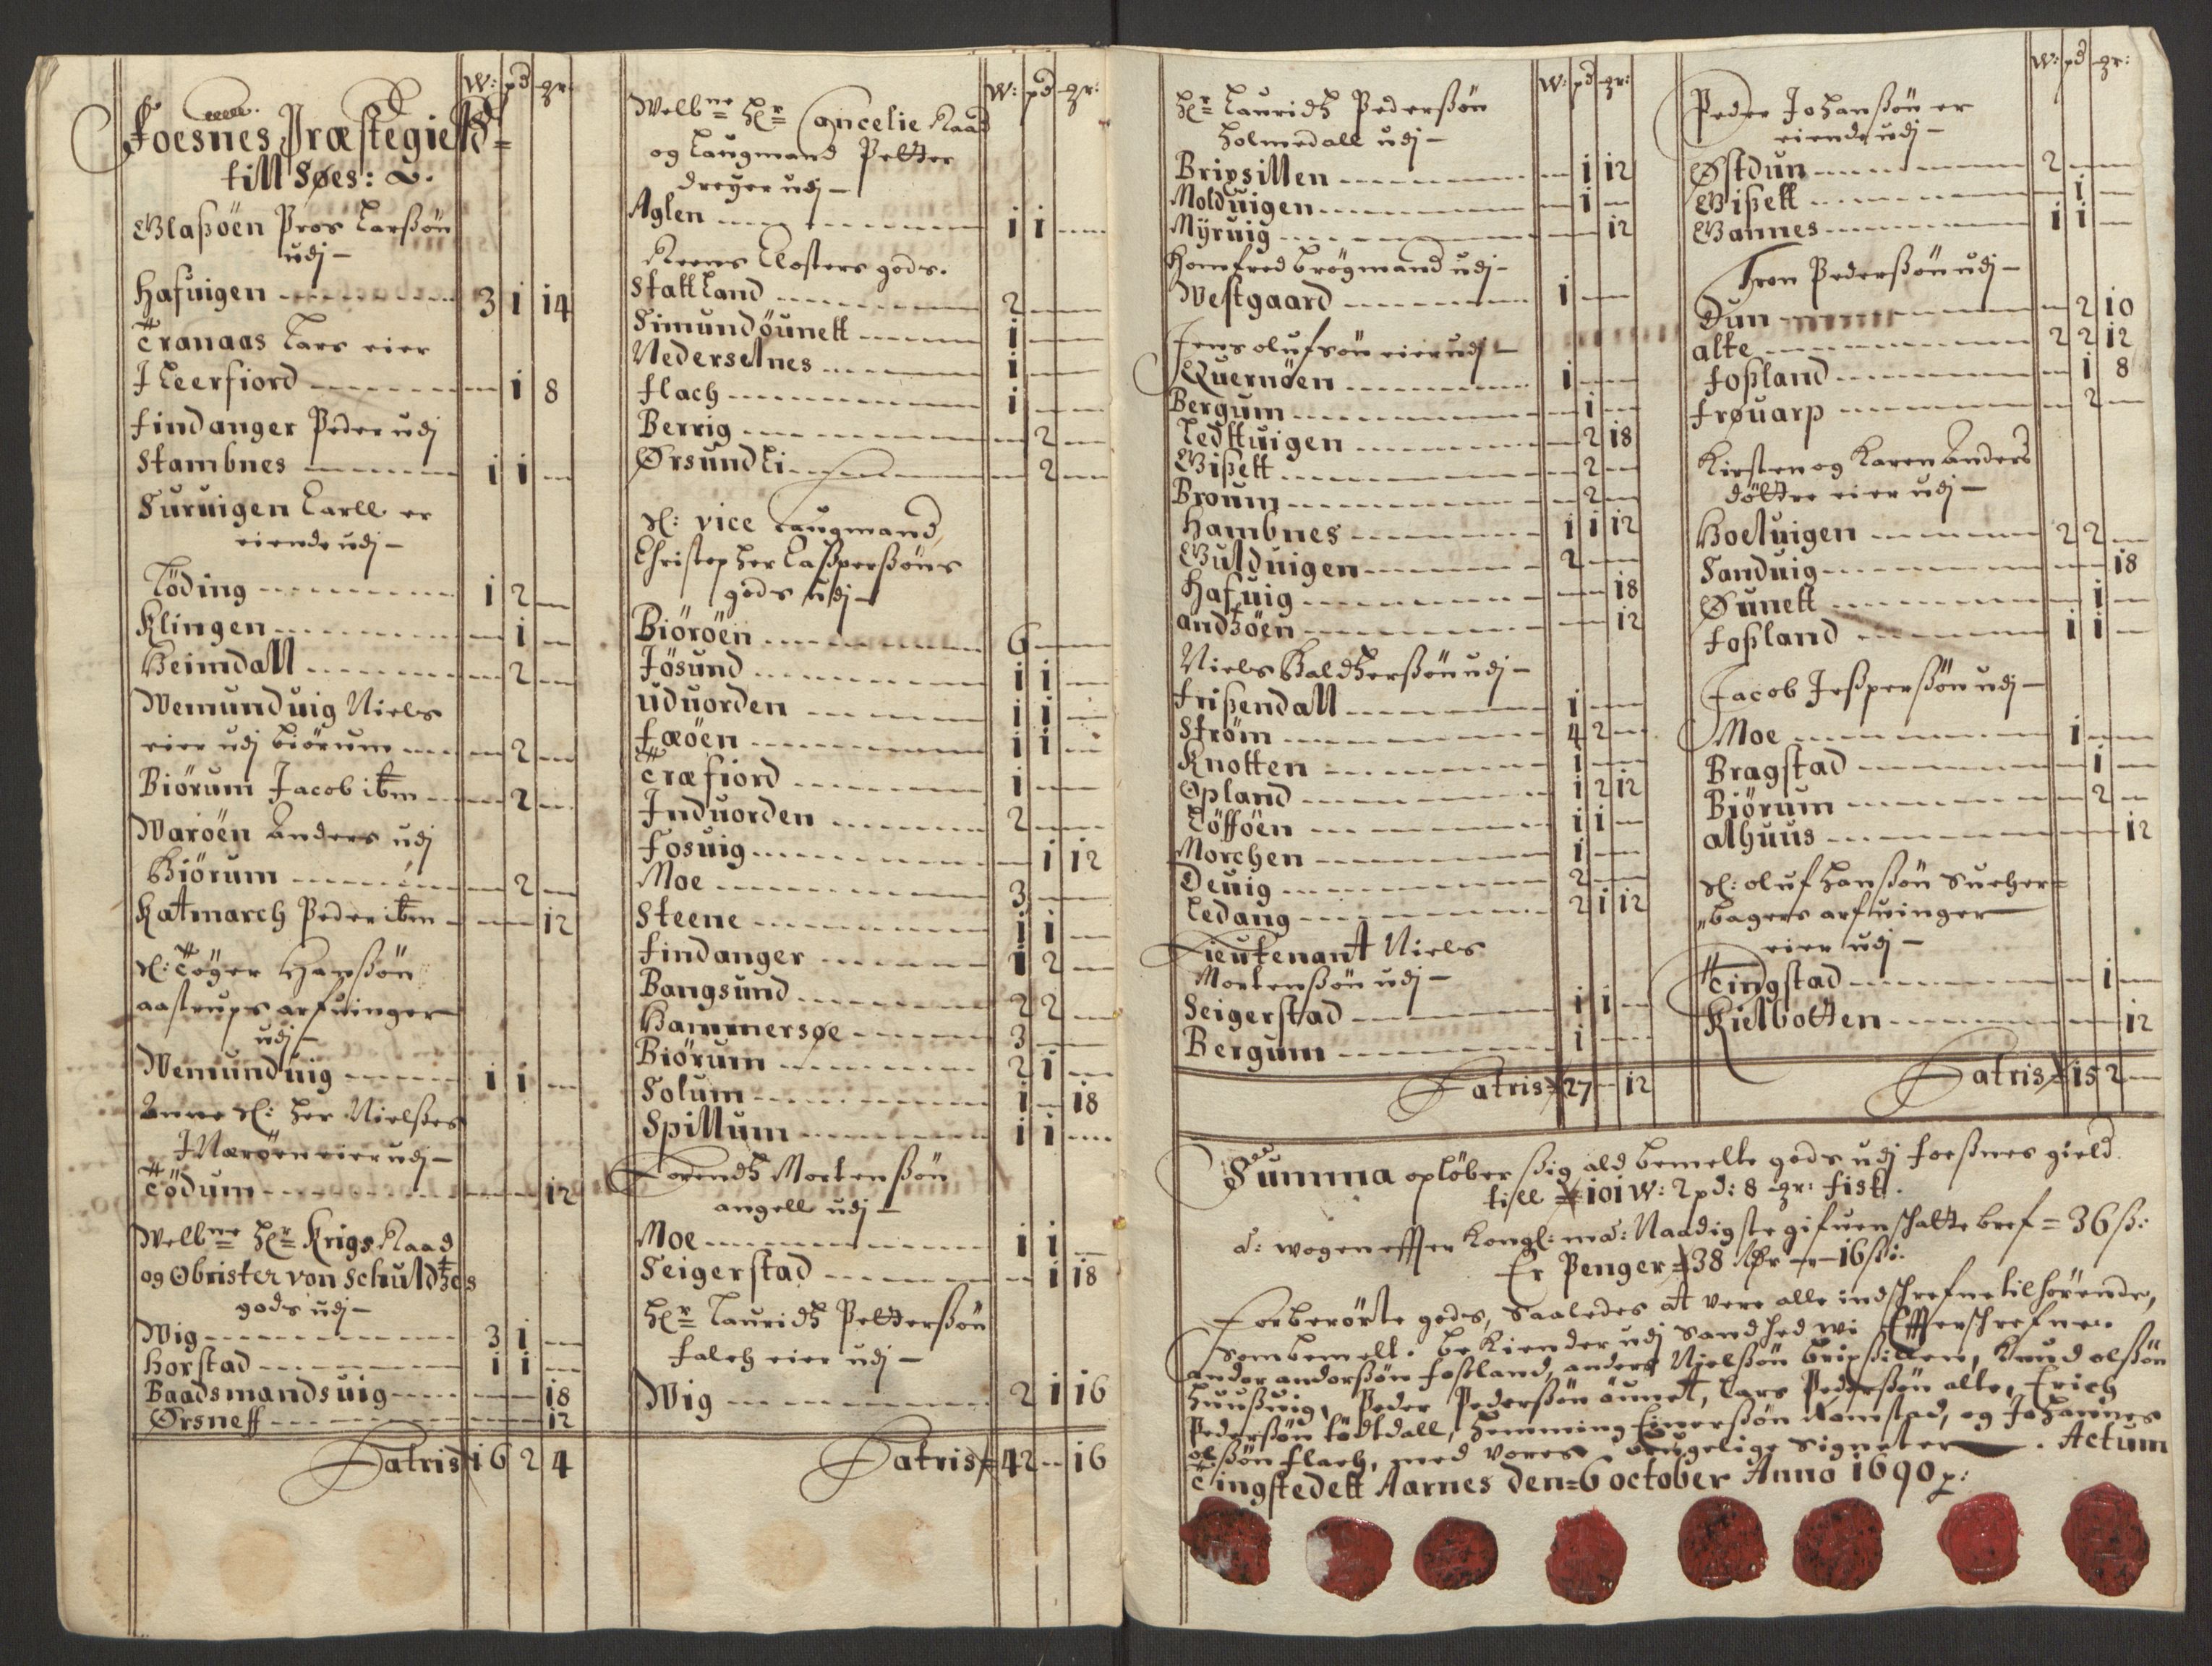 W: pd gr:
Foesnes Præstegield=
till Søes:
Glasöen Pros Larssön
udj –
Hafuigen 3 1 14
Tranaas Lars eier
J Leerfiord – 1 8
Findanger Peder udj
Stambnes 1 1 –
Suruigen Carll er
eiende udj –
Töding 1 2 –
Klingen – 1 –
Heimdall – 2 –
Wemunduig Niels
eier udj Biörum – 2 –
Biörum Jacob ibm – 2 –
Waröen Anders udj
Biörum – 2 –
Katmarch Peder ibm – – 12
Sl: Töger Hanssön
aastrups arfuinger
udj –
Wemunduig 1 1 –
Anne Sl: her Nielsses
J Næröen eier udj –
Tödum – – 12
Welbne Hr Krigs Raad
og Obrister von Schuldtzes
gods udj –
Wig 3 1 –
Horstad 1 1 –
Baadsmandsuig – – 18
Ørsness – – 12
Latris 16 2 4
W: pd gr:
Welbne Hr Cancelie Raad
og Laugmand Petter
Dreyer udj –
Aglen 1 1 –
Reens Closters gods.
Stattland 2 – –
Simundöunett 1 – –
Nederselnes 1 – –
Flach 1 – –
Berrig – 2 –
Ørsundli – 2 –
Sl: vice Laugmand
Christopher Casperssöns
gods udj –
Biöröen 6 – –
Jösund 1 1 –
uduorden 1 1 –
Fæöen 1 1 –
Træfiord 1 – –
Induorden 2 – –
Fosuig – 1 12
Moe 3 – –
Steene 1 1 –
Findanger 1 2 –
Bangsund 2 2 –
Hammersøe 3 – –
Biörum 2 1 –
Solum 1 – 18
Spillum 1 1 –
Lorendtz Mortenssön
angell udj –
Moe 1 1 –
Seigerstad – 1 18
Hr Lauridtz Petterssön
Falch eier udj –
Wig 2 1 16
Latris 42 – 16
W: pd gr:
Hr Lauridtz Pederssön
Holmedall udj –
Bripsillen – 1 12
Molduigen – 1 –
Myruig – – 12
Homfred Brögmand udj –
Westgaard 1 – –
Jens olufsön eier udj –
Quernöen 1 – –
Bergum – 1 –
Ledttuigen – 2 18
Gissett – 2 –
Broum – 2 –
Hambnes 1 1 12
Gulduigen 2 – –
Hafuig – – 18
andtzöen – – 12
Niels Baldtzerssön udj –
Frissendall 1 – –
Ström 4 2 –
Knotten 1 – –
Opland 1 2 12
Töfföen 1 1 –
Morchen 1 – –
Deuig 2 – –
Ledang 2 1 12
Lieutenant Niels
Mortenssön udj –
Seigerstad 1 1 –
Bergum 1 – –
Latris 27 – 12
W: pd gr:
Peder Johanssön er
eiende udj –
Østdun 2 – –
Gissett – 1 –
Gannes 1 1 –
Tron Pederssön udj –
Dun – 2 10
alte 2 2 12
Fossland – 1 8
Frøuarp – 2 –
Kirsten og Karen Anders
döttre eier udj –
Hoeluigen 2 2 –
Sanduig – – 18
Øunett – 1 –
Fossland 1 1 –
Jacob Jesperssön udj –
Moe 1 – –
Bragstad – 1 –
Biörum – 2 –
alhuus – – 12
Sl: oluf Hanssön Sucher=
bagers arfuinger
eier udj –
Tingstad – 1 –
Kielbotten – – 12
Latris 15 2 –
Summa opløber sig ald bemelte gods udj Foessnes gield
till 101 W: 2 pd: 8 gr: fisk.
a: wogen effter Kongl: ma: Naadigste gifuen schatte bref = 36 ss:
Er Penger 38 – 16 ss:
Forberörte gods, saaledes at vere alle indschrefne tilhørende,
som bemelt. bekiender udj Sandhed wi Effterschrefne.
andor andorssön Fossland, anders Nielssön Bripsillen, Knud olssön
Huussuig, Peder Pederssön äunet, Lars Pederssön alte, Erich
Pederssön Tödtdall, Hemming Einerssön Ramstad, og Johannes
olssön Flach, med vores Signeter. Actum
Tingstedett Aarnes den=6 october Anno 1690